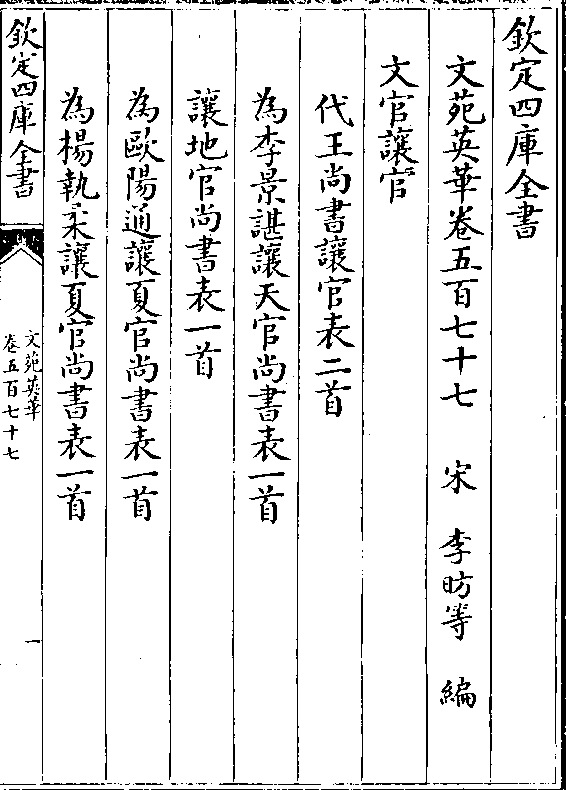 欽定四庫全書
文苑英華卷五百七十七　宋　李昉等　編
文官讓官
代王尚書讓官表二首
為李景諶讓天官尚書表一首
讓地官尚書表一首
為歐陽通讓夏官尚書表一首
為楊執柔讓夏官尚書表一首
欽定四庫全書
文苑英華
卷五百七十七
一